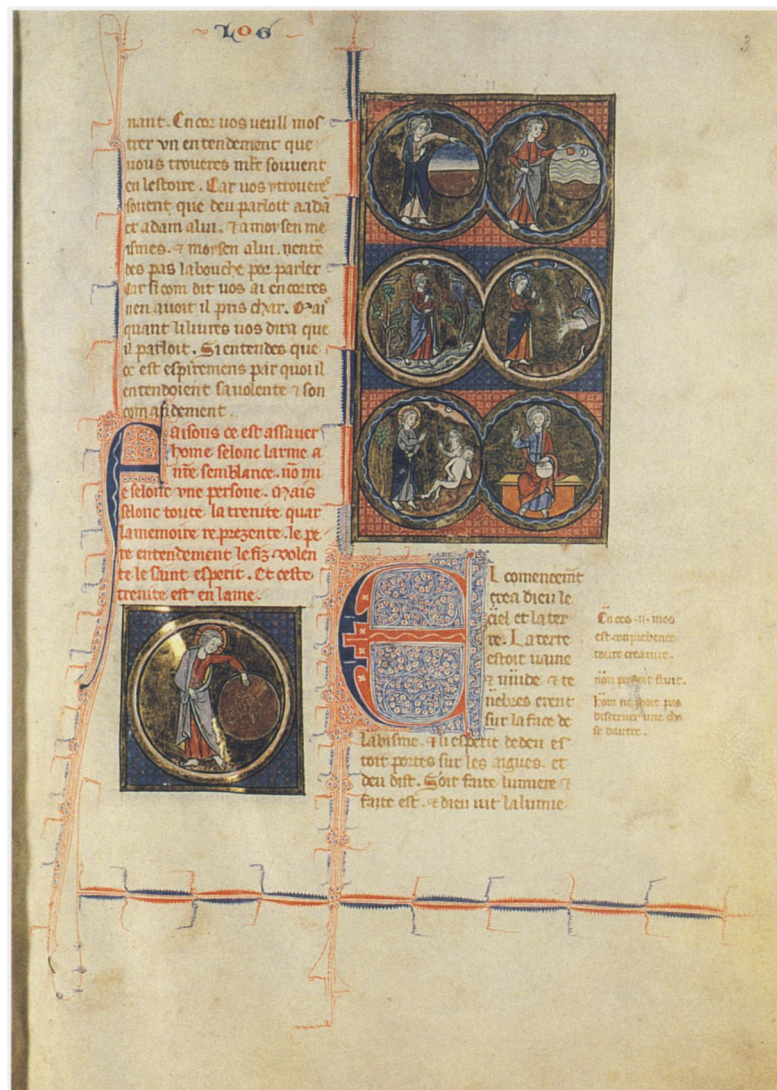 LOG
3
nant. Encor vos veull mos
trer vn entendement que
vous troveres mlt souvent
en lestoire. Car vos y trouerés
souent que deu parloit a adā
et adam a lui. ⁊ a moysen me
ismes. ⁊ moysen a lui. nentē
des pas la bouche por parler
Car si com dit vos ai encorres
nen auoit il pris char. Mais
quant li liures vos dira que
il parloit. Si entendes que
ce est espiremens par quoi il
entendoient sa volente ⁊ son
comādement.
Faisons ce est assauer
home selonc larme a
nr̄e semblance. nō mi
e selonc vne persone. Mais
selonc toute la trenite quar
la memoire reprezente le pe
re entendement le fiz volen
te le saint esperit. Et ceste
trenite est en lame.
El comencemēt
crea dieu le
ciel et la ter
re. La terre
estoit vaine
⁊ vuide ⁊ te
nebres erent
sur la face de
labisme. ⁊ li esperit de deu es
toit portes sur les aigues. et
deu dist. Soit faite lumiere ⁊
faite est. ⁊ dieu uit la lumie
En ces .ii. mos
est conprehence
toute creature.
non pooit
hom ne pooit pas
discerner une cho
se dautre.